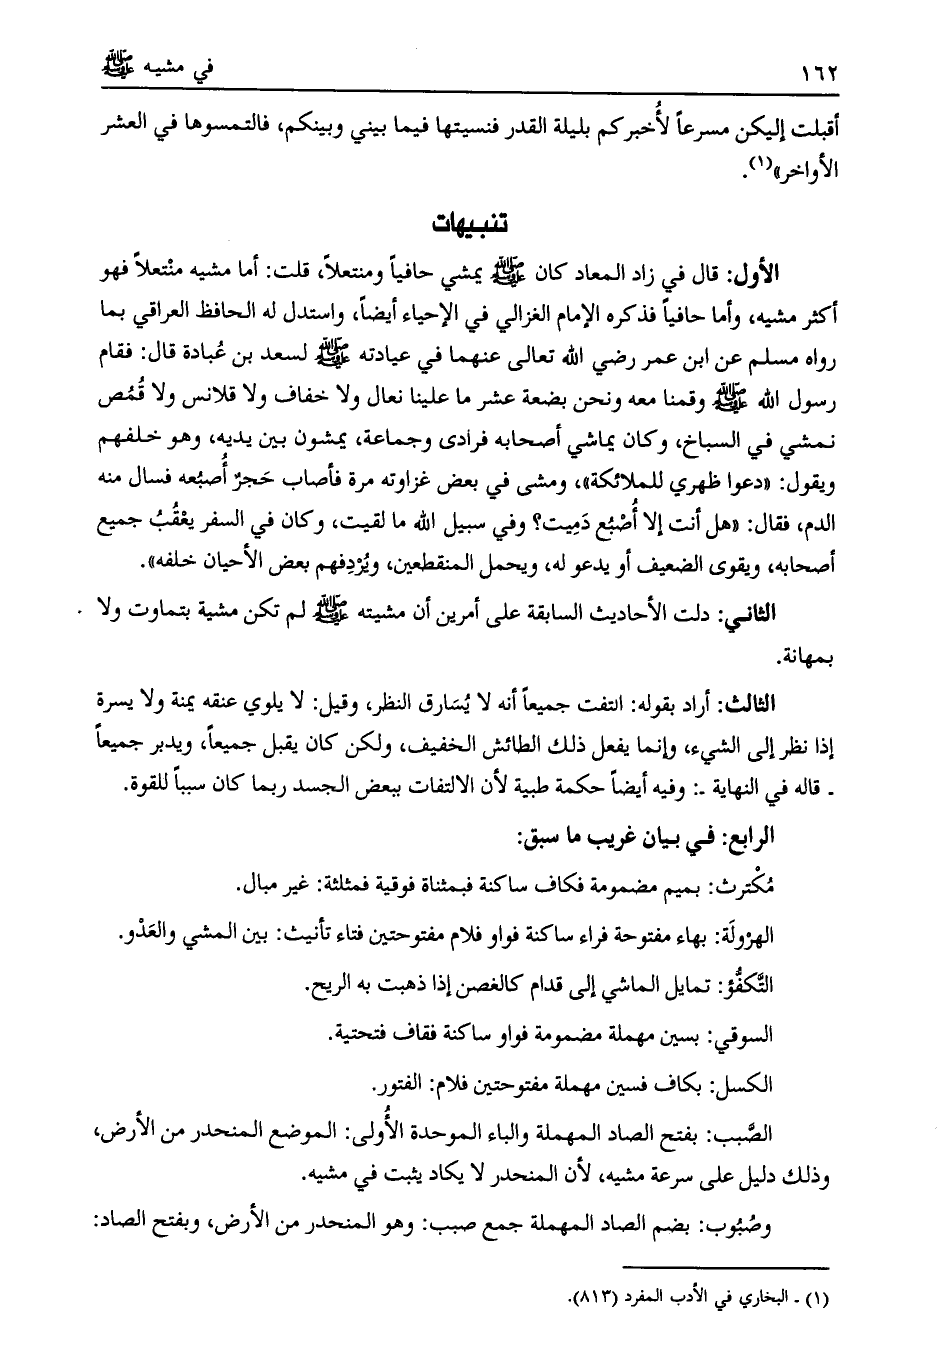 ١٦٢ في مشيه ﷺ
أقبلت إليكن مسرعاً لأُخبركم بليلة القدر فنسيتها فيما بيني وبينكم، فالتمسوها في العشر
الأواخر»(١).
تنبيهات
الأول: قال في زاد المعاد كان ﷺ يمشي حافياً ومنتعلاً، قلت: أما مشيه منْتعلاً فهو
أكثر مشيه، وأما حافياً فذكره الإمام الغزالي في الإحياء أيضاً، واستدل له الحافظ العراقي بما
رواه مسلم عن ابن عمر رضي الله تعالى عنهما في عيادته ﷺ لسعد بن عُبادة قال: فقام
رسول الله ﷺ وقمنا معه ونحن بضعة عشر ما علينا نعال ولا خفاف ولا قلانس ولا قُمُص
نمشي في السباخ، وكان يماشي أصحابه فرادى وجماعة، يمشون بين يديه، وهو خلفهم
ويقول: «دعوا ظهري للملائكة»، ومشى في بعض غزاوته مرة فأصاب حَجرٌ أُصبُعه فسال منه
الدم، فقال: «هل أنت إلا أُصْبُع دَمِيت؟ وفي سبيل الله ما لقيت، وكان في السفر يعْقُبُ جميع
أصحابه، ويقوى الضعيف أو يدعو له، ويحمل المنقطعين، ويُرْدِفهم بعض الأحيان خلفه».
الثاني: دلت الأحاديث السابقة على أمرين أن مشيته ﷺ لم تكن مشية بتماوت ولا
بمهانة.
الثالث: أراد بقوله: التفت جميعاً أنه لا يُسَارق النظر، وقيل: لا يلوي عنقه يمنة ولا يسرة
إذا نظر إلى الشيء، وإنما يفعل ذلك الطائش الخفيف، ولكن كان يقبل جميعاً، ويدبر جميعاً
ـ قاله في النهاية ـ: وفيه أيضاً حكمة طبية لأن الالتفات ببعض الجسد ربما كان سبباً للقوة.
الرابع: في بيان غريب ما سبق:
مُكْترث: بميم مضمومة فكاف ساكنة فبمثناة فوقية فمثلثة: غير مبال.
الهرْولَة: بهاء مفتوحة فراء ساكنة فواو فلام مفتوحتين فتاء تأنيث: بين المشي والعَدْو.
التَّكفُّؤ: تمايل الماشي إلى قدام كالغصن إذا ذهبت به الريح.
السوقي: بسين مهملة مضمومة فواو ساكنة فقاف فتحتية.
الكسل: بكاف فسين مهملة مفتوحتين فلام: الفتور.
الصَّبب: بفتح الصاد المهملة والباء الموحدة الأُولى: الموضع المنحدر من الأرض،
وذلك دليل على سرعة مشيه، لأن المنحدر لا يكاد يثبت في مشيه.
وصُبُوب: بضم الصاد المهملة جمع صبب: وهو المنحدر من الأرض، وبفتح الصاد:
(١) ـ البخاري في الأدب المفرد (٨١٣).